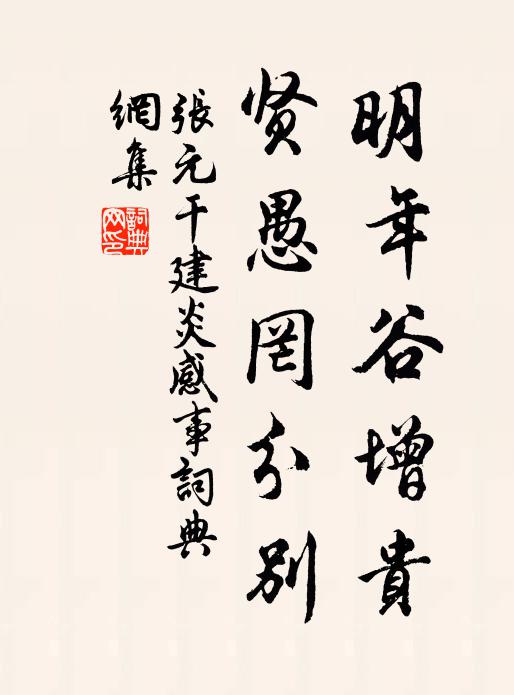 明年谷增貴
贤愚罔分别
張元干建炎感事詞典
網集
詞典網印